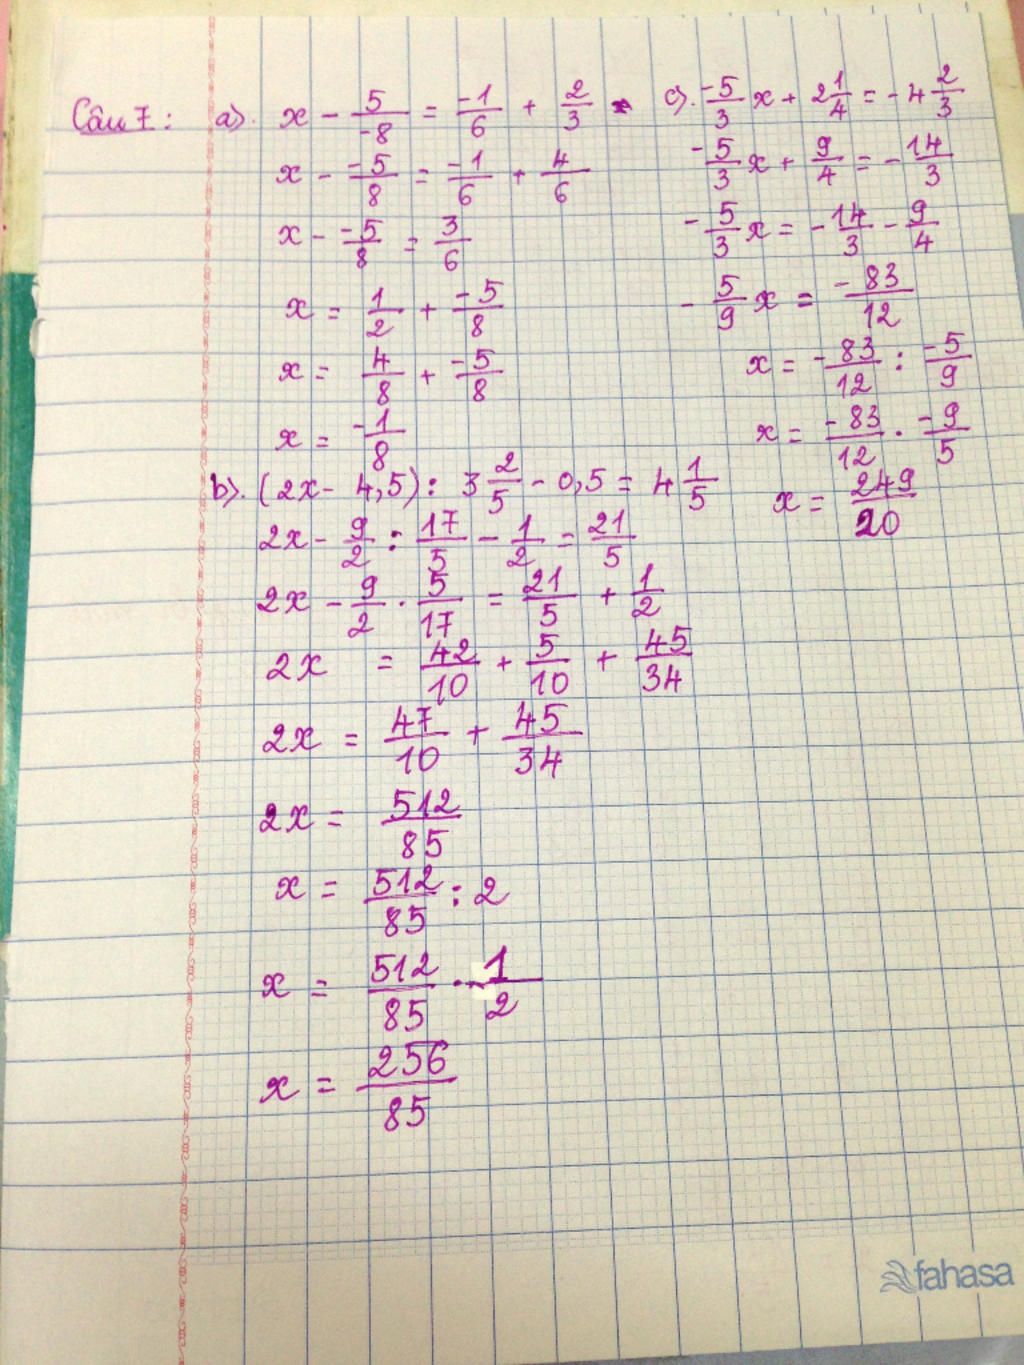 Câu 7: a). x - 5/-8 = -1/6 + 2/3
x - -5/8 = -1/6 + 4/6
x - -5/8 = 3/6
x = 1/2 + -5/8
x = 4/8 + -5/8
x = -1/8
b). (2x - 4,5) : 3 2/5 - 0,5 = 4 1/5
2x - 9/2 : 17/5 - 1/2 = 21/5
2x - 9/2 . 5/17 = 21/5 + 1/2
2x = 42/10 + 5/10 + 45/34
2x = 47/10 + 45/34
2x = 512/85
x = 512/85 : 2
x = 512/85 . 1/2
x = 256/85
c). -5/3 x + 2 1/4 = -4 2/3
-5/3 x + 9/4 = -14/3
-5/3 x = -14/3 - 9/4
-5/9 x = -83/12
x = -83/12 : -5/9
x = -83/12 . -9/5
x = 249/20
fahasa